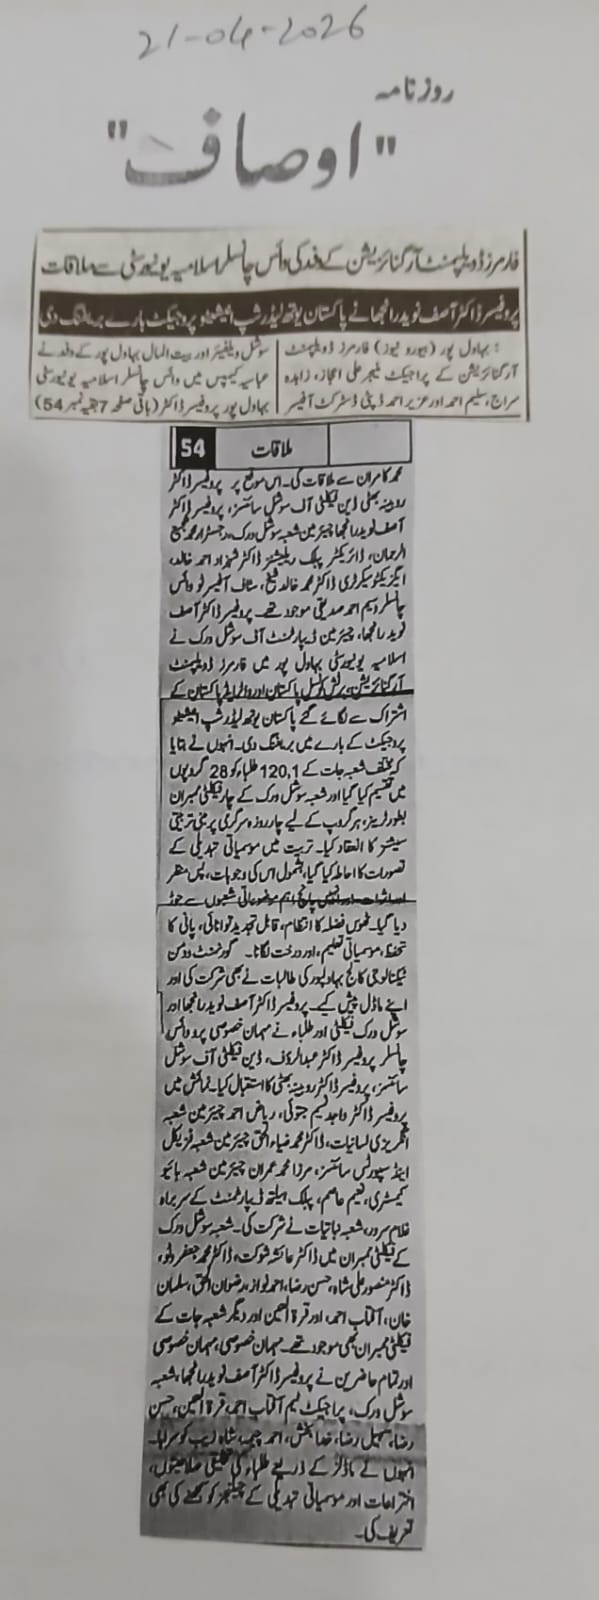 21-04-2026
روزنامہ
"اوصاف"
فارمرز ڈویلپمنٹ آرگنائزیشن کے وفد کی وائس چانسلر اسلامیہ یونیورسٹی سے ملاقات
پروفیسر ڈاکٹر آصف نوید رانجھا نے پاکستان یوتھ لیڈر شپ انیشیٹو پروجیکٹ بارے بریفنگ دی
بہاول پور (بیورو نیوز) فارمرز ڈویلپمنٹ
آرگنائزیشن کے پراجیکٹ منیجر علی اعجاز، زاہدہ
سراج، سلیم احمد اور عزیر احمد ڈپٹی ڈسٹرکٹ آفیسر
سوشل ویلفیئر اور بیت المال بہاول پور کے وفد نے
عباسیہ کیمپس میں وائس چانسلر اسلامیہ یونیورسٹی
بہاول پور پروفیسر ڈاکٹر (باقی صفحہ 7 بقیہ نمبر 54)
54 ملاقات
محمد کامران سے ملاقات کی۔ اس موقع پر پروفیسر ڈاکٹر
روبینہ بھٹی ڈین فیکلٹی آف سوشل سائنسز، پروفیسر ڈاکٹر
آصف نوید رانجھا چیئرمین شعبہ سوشل ورک، رجسٹرار محمد شجیع
الرحمان، ڈائریکٹر پبلک ریلیشنز ڈاکٹر شہزاد احمد خالد،
ایگزیکٹو سیکرٹری ڈاکٹر محمد خالد شیخ، سٹاف آفیسر ٹو وائس
چانسلر وسیم احمد صدیقی موجود تھے۔ پروفیسر ڈاکٹر آصف
نوید رانجھا، چیئرمین ڈیپارٹمنٹ آف سوشل ورک نے
اسلامیہ یونیورسٹی بہاول پور میں فارمرز ڈویلپمنٹ
آرگنائزیشن، برٹش کونسل پاکستان اور واٹر ایڈ پاکستان کے
اشتراک سے لگائے گئے پاکستان یوتھ لیڈر شپ انیشیٹو
پروجیکٹ کے بارے میں بریفنگ دی۔ انہوں نے بتایا
کہ مختلف شعبہ جات کے 120,1 طلباء کو 28 گروپوں
میں تقسیم کیا گیا اور شعبہ سوشل ورک کے چار فیکلٹی ممبران
بطور ٹرینر، ہر گروپ کے لیے چار روزہ سرگرمی پر مبنی تربیتی
سیشنز کا انعقاد کیا۔ تربیت میں موسمیاتی تبدیلی کے
تصورات کا احاطہ کیا گیا، بشمول اس کی وجوہات، پس منظر
اور اثرات اور انہیں پانچ اہم موضوعاتی شعبوں سے جوڑ
دیا گیا۔ ٹھوس فضلہ کا انتظام، قابل تجدید توانائی، پانی کا
تحفظ، موسمیاتی تعلیم، اور درخت لگانا۔ گورنمنٹ وومن
ٹیکنالوجی کالج بہاولپور کی طالبات نے بھی شرکت کی اور
اپنے ماڈل پیش کیے۔ پروفیسر ڈاکٹر آصف نوید رانجھا اور
سوشل ورک فیکلٹی اور طلباء نے مہمان خصوصی پرو وائس
چانسلر پروفیسر ڈاکٹر عبدالرؤف، ڈین فیکلٹی آف سوشل
سائنسز، پروفیسر ڈاکٹر روبینہ بھٹی کا استقبال کیا۔ نمائش میں
پروفیسر ڈاکٹر واجد نسیم جتوئی، ریاض احمد چیئرمین شعبہ
انگریزی لسانیات، ڈاکٹر محمد ضیاء الحق چیئرمین شعبہ فزیکل
اینڈ سپورٹس سائنسز، مرزا محمد عمران چیئرمین شعبہ بائیو
کیمسٹری، نعیم عاصم، پبلک ہیلتھ ڈیپارٹمنٹ کے سربراہ
غلام سرور، شعبہ نباتیات نے شرکت کی۔ شعبہ سوشل ورک
کے فیکلٹی ممبران میں ڈاکٹر عائشہ شوکت، ڈاکٹر محمد جعفر ولو،
ڈاکٹر منصور علی شاہ، حسن رضا، احمد نواز، رضوان الحق، سلمان
خان، آفتاب احمد، اور قرۃ العین اور دیگر شعبہ جات کے
فیکلٹی ممبران بھی موجود تھے۔ مہمان خصوصی، مہمان خصوصی
اور تمام حاضرین نے پروفیسر ڈاکٹر آصف نوید رانجھا، شعبہ
سوشل ورک، پراجیکٹ ٹیم آفتاب احمد، قرۃ العین، حسن
رضا، سہیل رضا، خدا بخش، احمد چیمہ، شاہ زیب کو سراہا۔
انہوں نے ماڈلز کے ذریعے طلباء کی تخلیقی صلاحیتوں،
اختراعات اور موسمیاتی تبدیلی کے چیلنجز کو سمجھنے کی بھی
تعریف کی۔